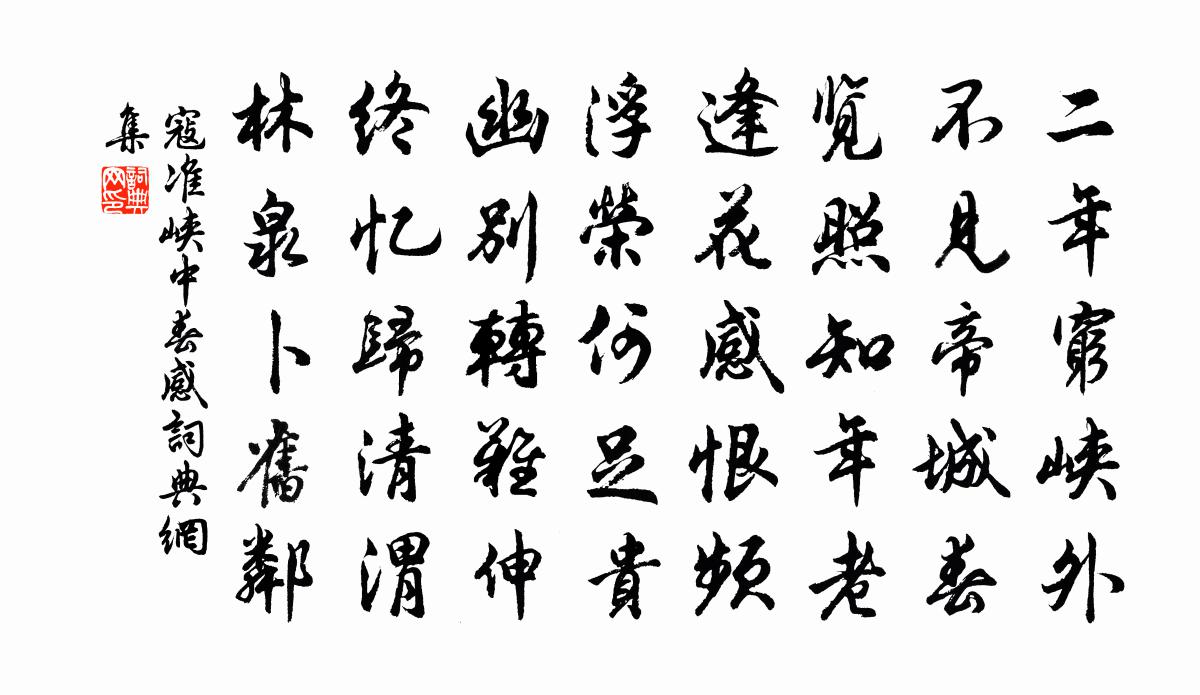 二年窮峽外
不見帝城春
览照知年老
逢花感恨頻
浮榮何足貴
幽別轉難伸
终忆歸清渭
林泉卜舊鄰
寇准峽中春感詞典網
集
詞典
网印